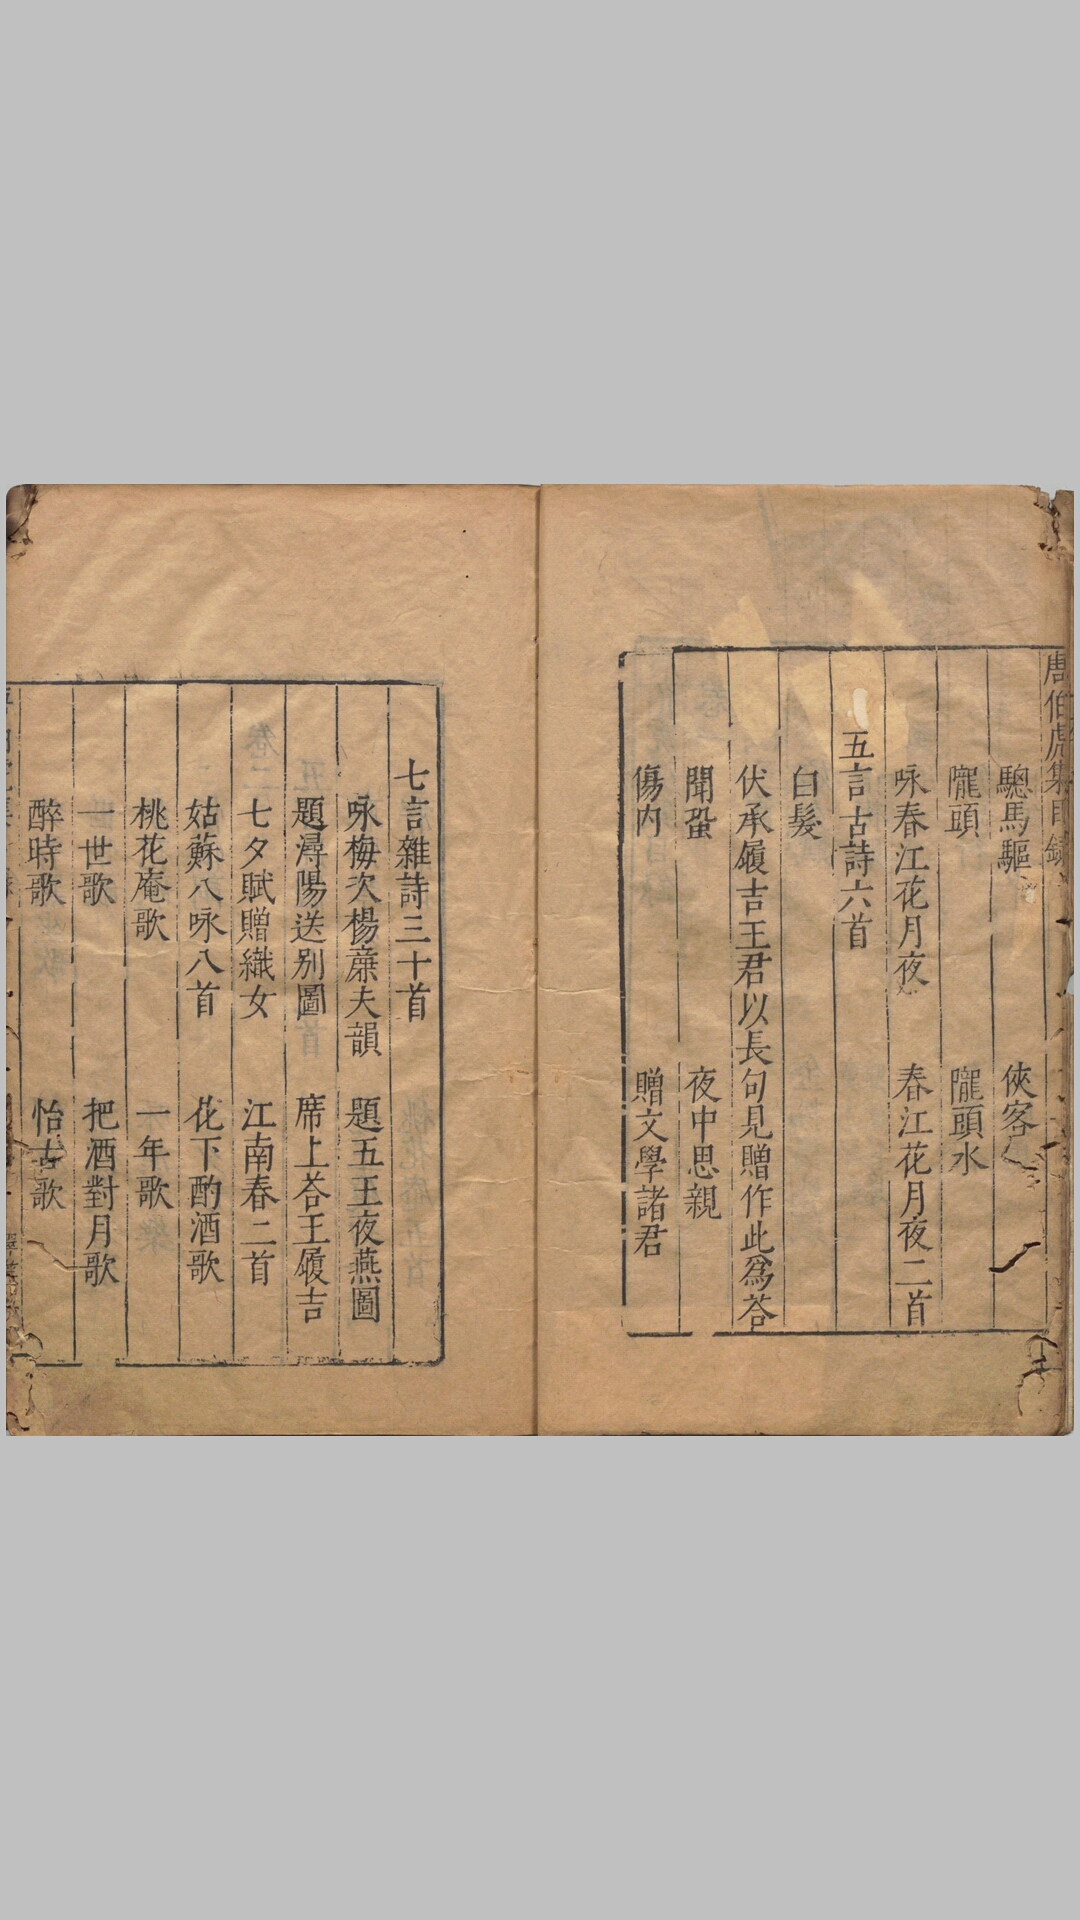 唐伯虎集目錄
驄馬驅　俠客
隴頭　隴頭水
咏春江花月夜　春江花月夜二首
五言古詩六首
白髮
伏承履吉王君以長句見贈作此爲荅
聞蛩　夜中思親
傷内　贈文學諸君
七言雜詩三十首
咏梅次楊㢘夫韻　題五王夜燕圖
題潯陽送别圖　席上荅王履吉
七夕賦贈織女　江南春二首
姑蘇八咏八首　花下酌酒歌
桃花庵歌　一年歌
一世歌　把酒對月歌
醉時歌　怡古歌